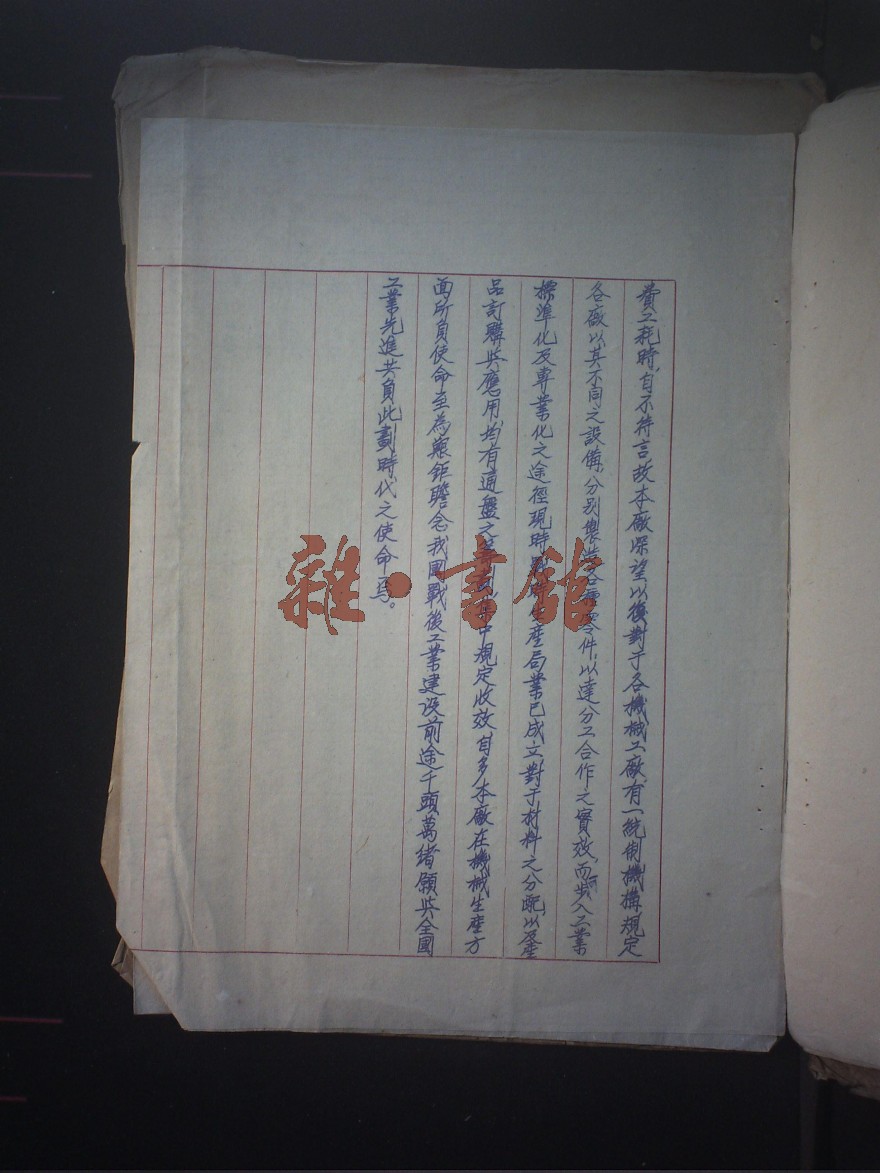 費工耗時，自不待言故本廠深望以後對于各機械工廠，有一統制機構，規定
各廠以其不同之設備，分別製造各種零件，以達分工合作之實效，而步入工業
標準化及專業化之途徑現時戰時生產局業已成立對于材料之分配，以及產
品訂購與應用，均有通盤之籌劃集中規定收效自多本廠在機械生產方
面所負使命至為艱鉅瞻念我國戰後工業建設前途千頭萬緒願與全國
工業先進共負此劃時代之使命焉。
雜·書館